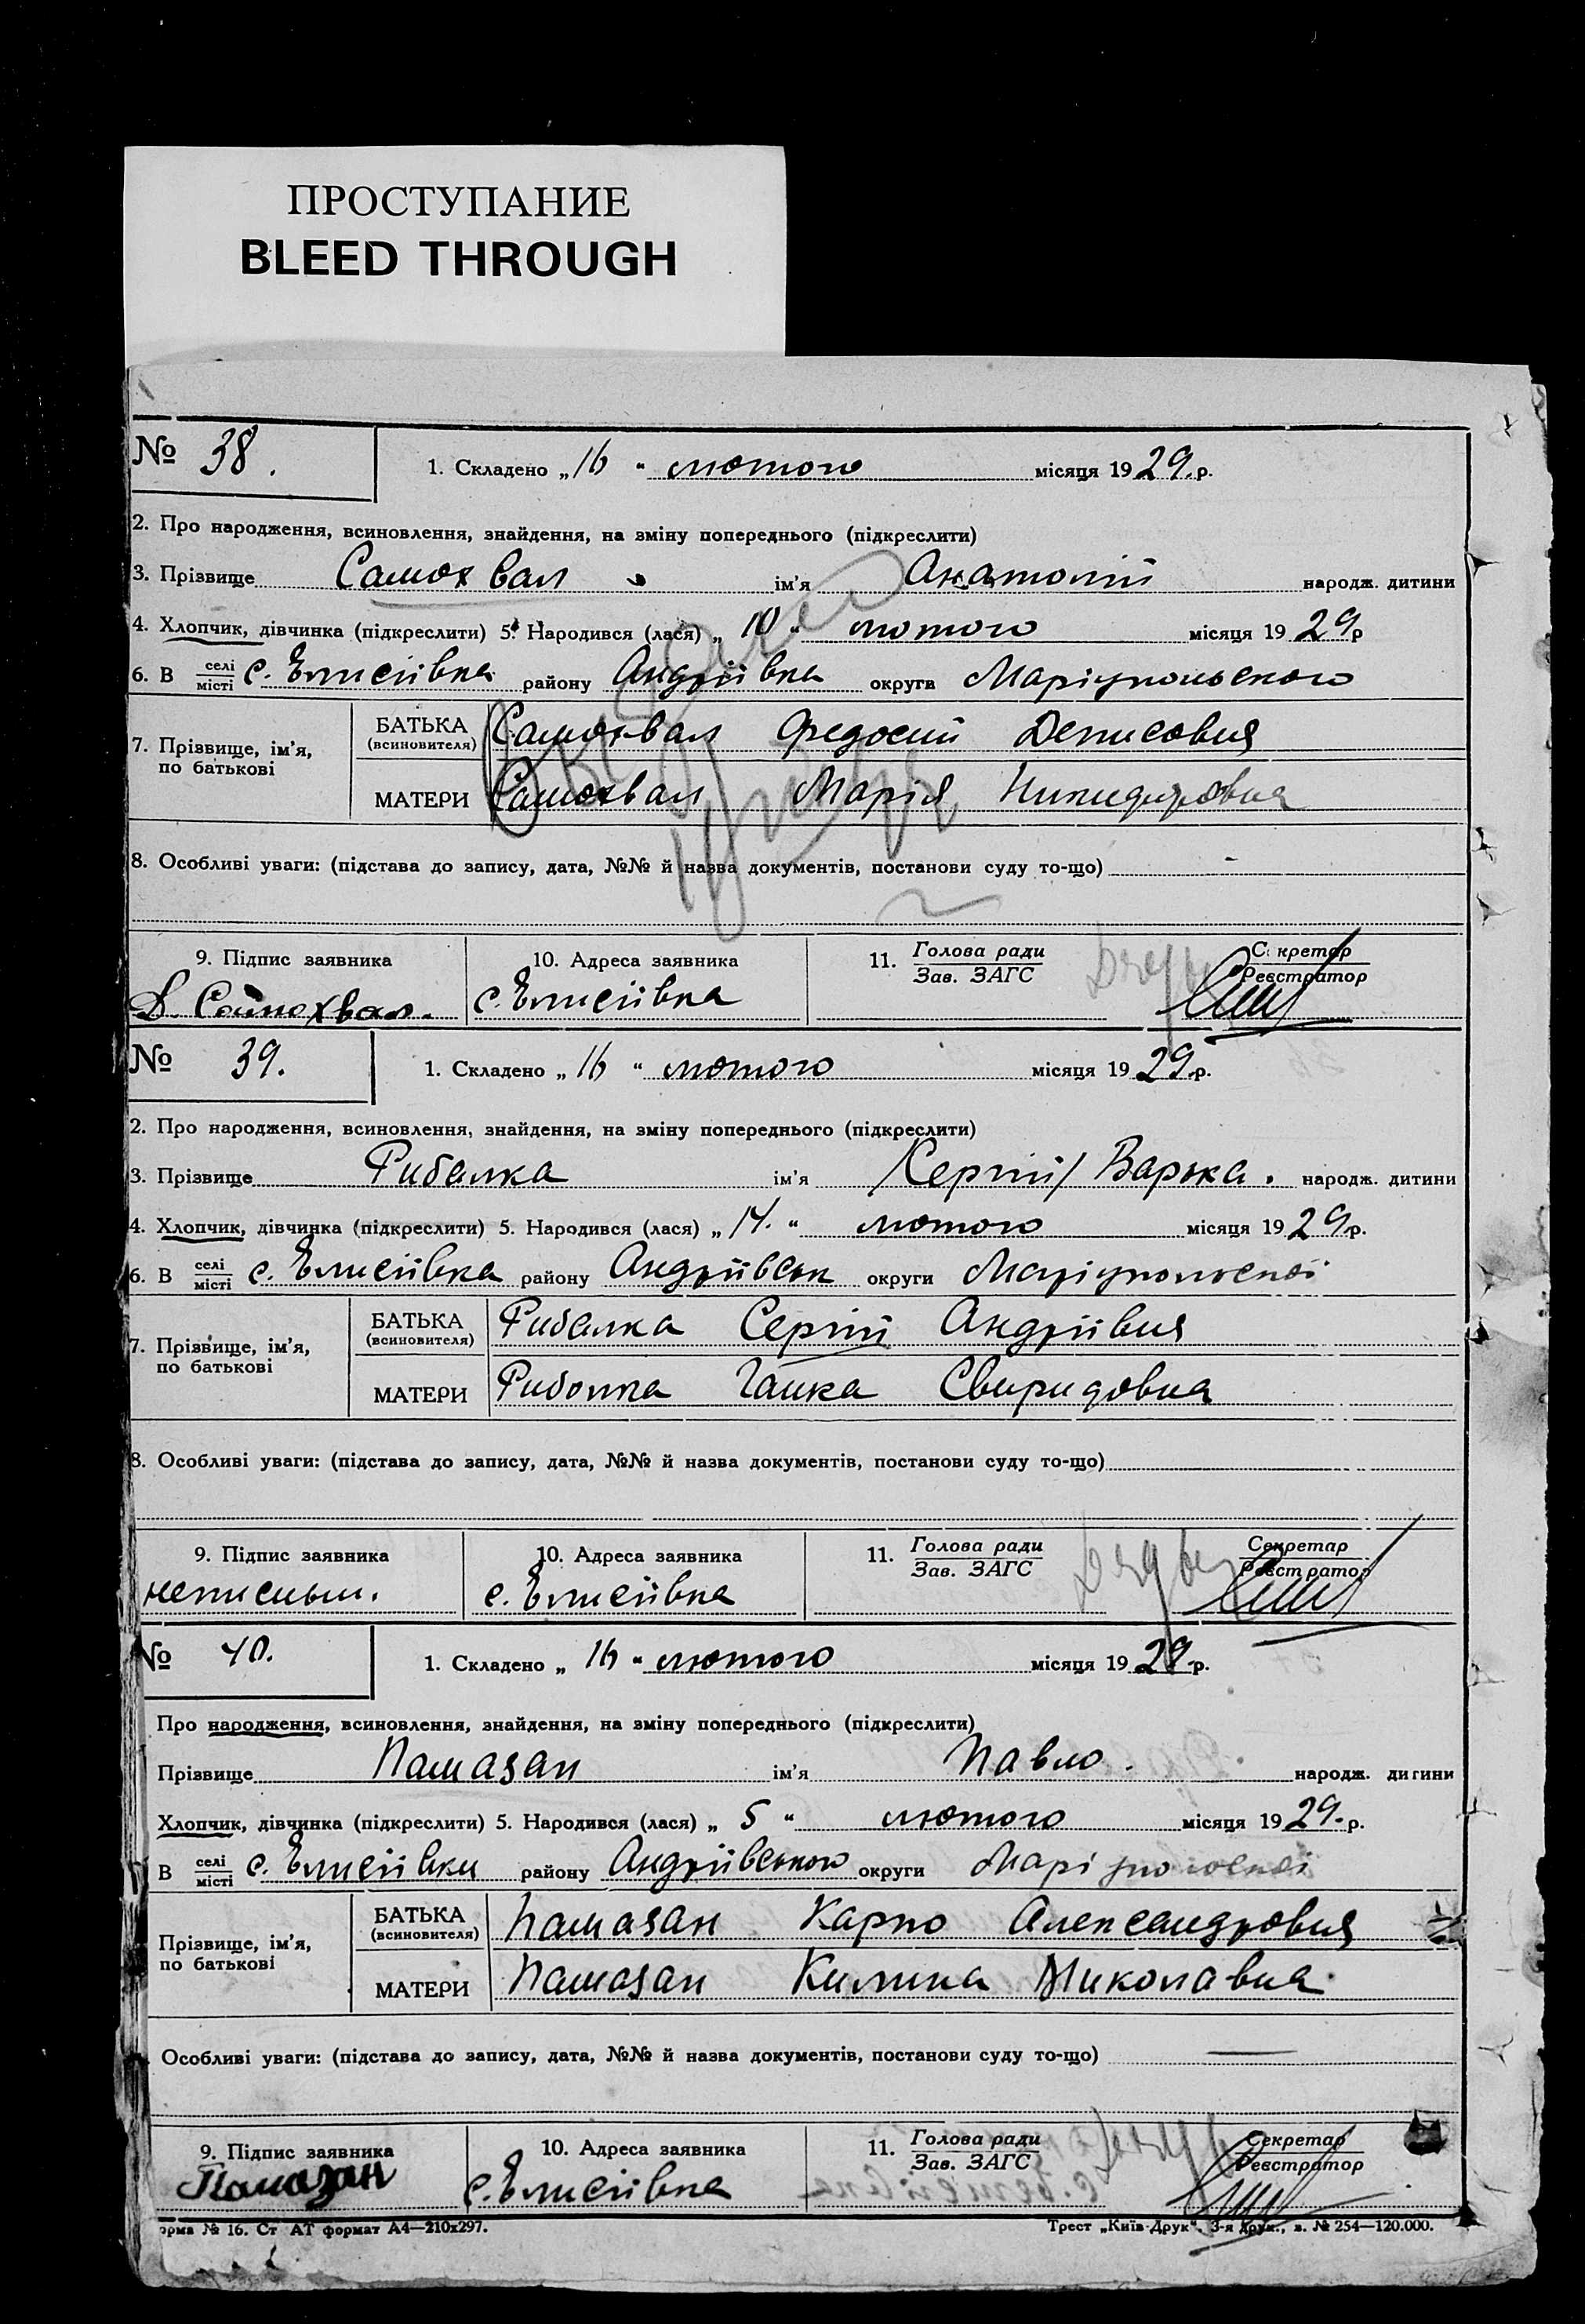 ПРОСТУПАНИЕ
BLEED THROUGH
№ 38.
1. Складено „16“ лютого місяця 1929.р.
2. Про народження, всиновлення, знайдення, на зміну попереднього (підкреслити)
3. Прізвище Самохвал ім’я Анатолій народж. дитини
4. Хлопчик, дівчинка (підкреслити) 5. Народився (лася) „10“ лютого місяця 1929р
6. В селі місті с. Елисіївка району Андріївка округи Маріупольского
7. Прізвище, ім’я, по батькові
БАТЬКА (всиновителя) Самохвал Федосий Денисович
МАТЕРИ Самохвал Марія
8. Особливі уваги: (підстава до запису, дата, №№ й назва документів, постанови суду то-що) -
9. Підпис заявника
10. Адреса заявника
11. Голова ради Зав. ЗАГС
Секретар Реєстратор
Самохвал.
с. Елисіївка
№ 39.
1. Складено „16“ лютого місяця 1929.р.
2. Про народження, всиновлення, знайдення, на зміну попереднього (підкреслити)
3. Прізвище Рибалка ім’я /Сергій/ Варька. народж. дитини
4. Хлопчик, дівчинка (підкреслити) 5. Народився (лася) „14.“ лютого місяця 1929.р.
6. В селі місті с. Елисіївка району Андріївськ округи Маріупольскої
7. Прізвище, ім’я, по батькові
БАТЬКА (всиновителя) Рибалка Сергій Андріївич
МАТЕРИ Рибалка Ганка Свиридовна
8. Особливі уваги: (підстава до запису, дата, №№ й назва документів, постанови суду то-що)
9. Підпис заявника
10. Адреса заявника
11. Голова ради Зав. ЗАГС
Секретар Реєстратор
с. Елисіївка
№ 40.
1. Складено „16“ лютого місяця 1929р.
Про народження, всиновлення, знайдення, на зміну попереднього (підкреслити)
Прізвище Памазан ім’я Павло. народж. дитини
Хлопчик, дівчинка (підкреслити) 5. Народився (лася) „5“ лютого місяця 1929.р.
В селі місті с. Елисіївки району Андріївського округи Маріупольскої
Прізвище, ім’я, по батькові
БАТЬКА (всиновителя) Памазан Карпо Александрович
МАТЕРИ Памазан Килина Миколавна
Особливі уваги: (підстава до запису, дата, №№ й назва документів, постанови суду то-що) —
9. Підпис заявника
10. Адреса заявника
11. Голова ради Зав. ЗАГС
Секретар Реєстратор
Памазан
с. Елисіївка
орма № 16. Ст АТ формат А4—210х297.
Трест „Київ-Друк“, 3-я друк., з. № 254—120.000.